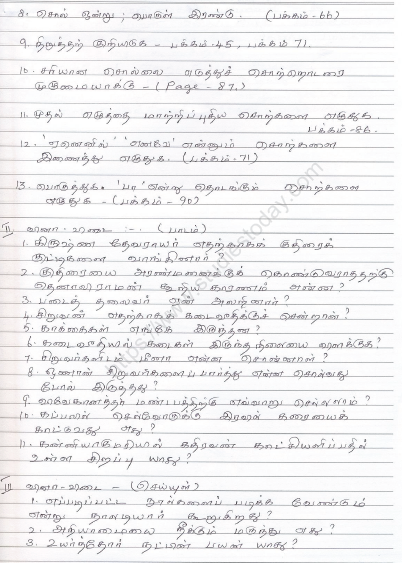 8. சொல் ஒன்று ; பொருள் இரண்டு. (பக்கம்-66)
9. நிறுத்தற் குறியிடுக - பக்கம்.45, பக்கம் 71.
10. சரியான சொல்லை எடுத்துச் சொற்றொடரை
முழுமையாக்கு - (Page - 87.)
11. முதல் எழுத்தை மாற்றிப் புதிய சொற்களை எழுதுக.
பக்கம்-86.
12. 'ஏனெனில்' 'எனவே' என்னும் சொற்களை
இணைத்து எழுதுக. (பக்கம்-71)
13. பொருத்துக. 'பா' என்று தொடங்கும் சொற்களை
எழுதுக - (பக்கம் - 90)
II வினா-விடை :-. (பாடம்)
1. கிருஷ்ண தேவராயர் எதற்காகக் குதிரைக்
குட்டிகளை வாங்கினார் ?
2. குதிரையை அரண்மனைக்குக் கொண்டுவராததற்கு
தெனாலிராமன் கூறிய காரணம் என்ன?
3. படைத் தலைவர் ஏன் அலறினார் ?
4. சிறுவன் எதற்காகக் கடைவீதிக்குச் சென்றான் ?
5. காக்கைகள் எங்கே இருந்தன ?
6. கடைவீதியில் கடைகள் இருந்த நிலையை விளக்குக ?
7. சிறுவர்களிடம் மீனா என்ன சொன்னாள் ?
8. ஓணான் சிறுவர்களைப் பார்த்து என்ன சொல்வது
போல் இருந்தது ?
9. விவேகானந்தர் மண்டபத்திற்கு எவ்வாறு செல்லலாம் ?
10. கப்பலில் செல்வோருக்கு இரவில் கரையைக்
காட்டுவது எது ?
11. கன்னியாகுமரியில் கதிரவன் காட்சியளிப்பதில்
உள்ள சிறப்பு யாது ?
III வினா-விடை - (செய்யுள்)
1. எப்படிப்பட்ட நூல்களைப் படிக்க வேண்டும்
என்று நாலடியார் கூறுகிறது ?
2. அறியாமையை நீக்கும் மருந்து எது ?
3. உயர்ந்தோர் நட்பின் பயன் யாது ?